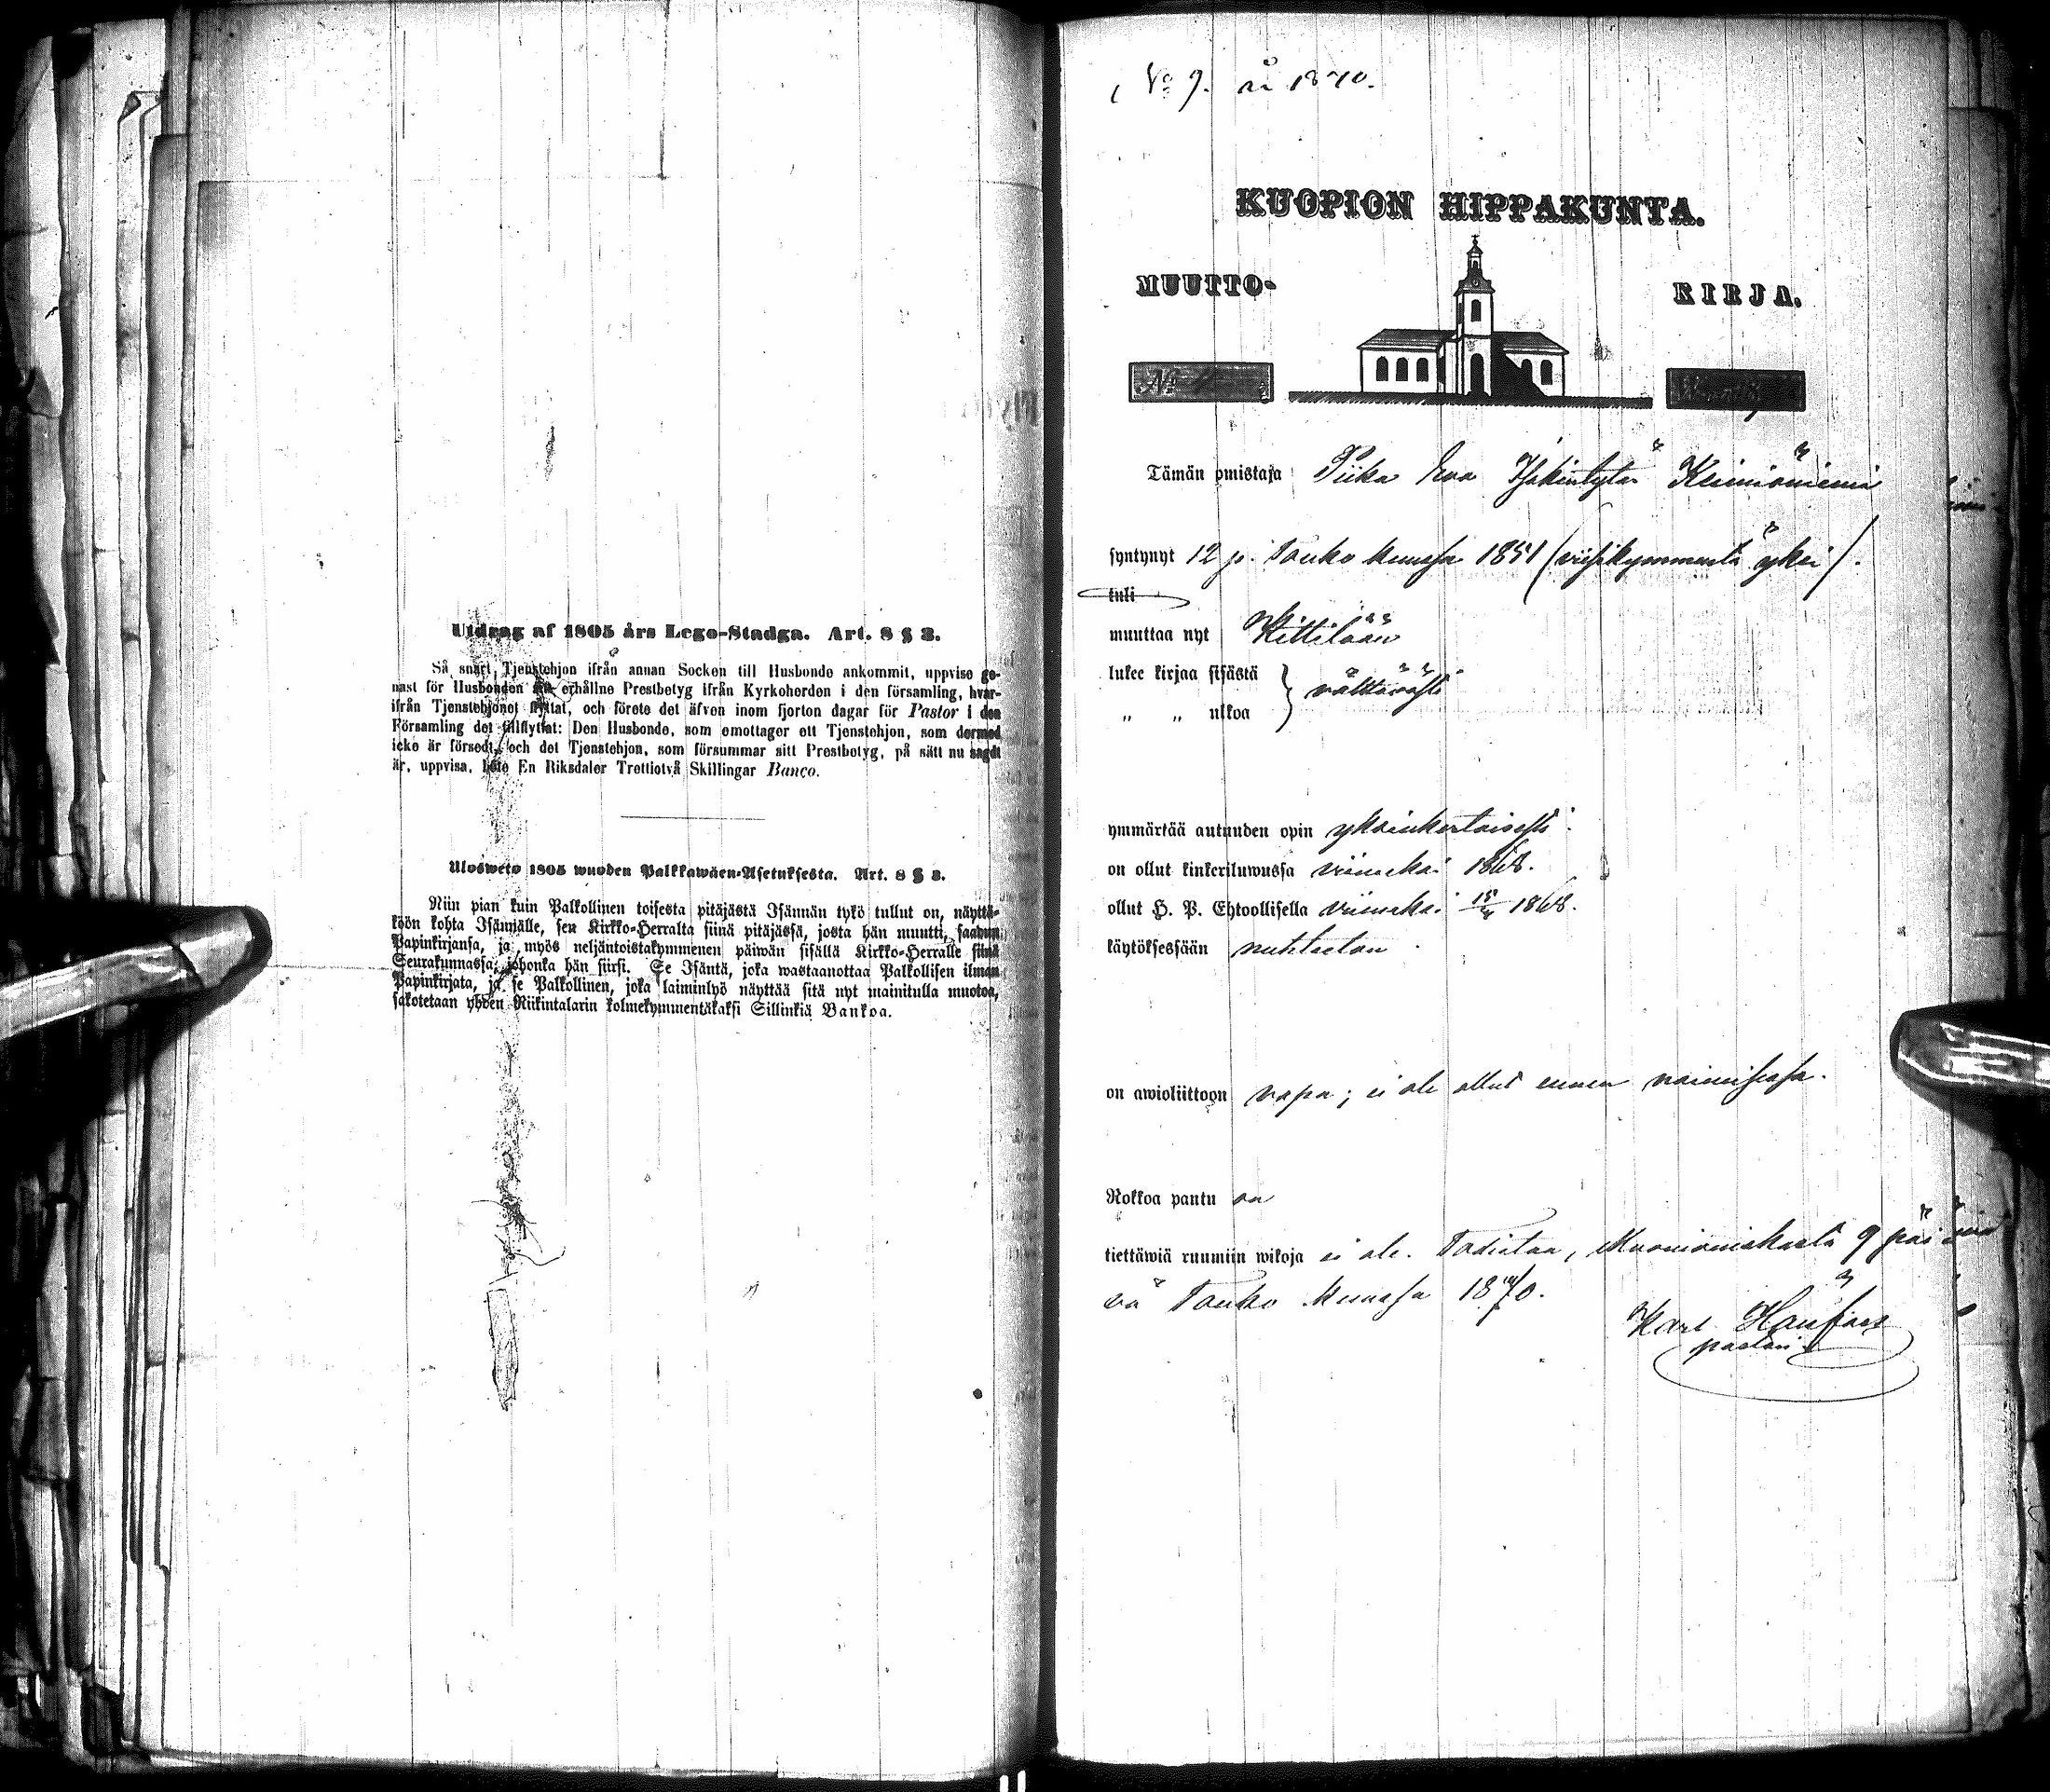 Utdrag af 1805 års Lego-Stadga. Art. 8 § 3.
Så snart Tjenstehjon ifrån annan Socken till Husbonde ankommit, uppvise ge-
nast för Husbonden erhållne Prestbetyg ifrån Kyrkoherden i den församling, hvar-
ifrån Tjenstehjonet flyttat, och förete det äfven inom fjorton dagar för Pastor i den
Församling det tillflyttat: Den Husbonde, som emottager ett Tjenstehjon, som dermed
icke är försedt, och det Tjenstehjon, som försummar sitt Prestbetyg, på sätt nu sagdt
är, uppvisa, böte En Riksdaler Trettiotvå Skillingar Banco.
Ulosweto 1805 wuoden Palkkawäen-Asetuksesta. Art. 8 § 3.
Niin pian kuin Palkollinen toisesta pitäjästä Isännän tykö tullut on, näyttä-
köön kohta Isännälle, sen Kirkko-Herralta siinä pitäjässä, josta hän muutti, saadun
Papinkirjansa, ja myös neljäntoistakymmenen päiwän sisällä Kirkko-Herralle siinä
Seurakunnassa, johonka hän siirsi. Se Isäntä, joka wastaanottaa Palkollisen ilman
Papinkirjata, ja se Palkollinen, joka laiminlyö näyttää sitä nyt mainitulla muotoa,
sakotetaan yhden Riikintalarin kolmekymmentäkaksi Sillinkiä Bankoa.
No 9. år 1870.
KUOPION HIPPAKUNTA.
MUUTTO- KIRJA.
No
Tämän omistaja Piika Eva Isakintytär Keimiöniemi
syntynyt 12 p. Touko kuussa 1851 (viisikymmentä yksi).
tuli
muuttaa nyt Kittilään
lukee kirjaa sisästä
„ „ ulkoa välttävästi
ymmärtää autuuden opin yksinkertaisesti.
on ollut kinkeriluwussa viimeksi 1868.
ollut H. P. Ehtoollisella viimeksi 1868.
käytöksessään nuhteeton.
on awioliittoon vapa; ei ole ollut ennen naimisessa.
Rokkoa pantu on
tiettäwiä ruumiin wikoja ei ole. Todistaa, Muonionniskasta 9 päi
vä Touko kuussa 1870.
Karl
pastori.